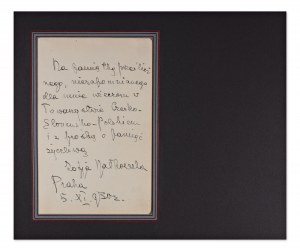 Na pamiątkę
nego, niezapomnianego
dla mnie wieczoru w
Towarzystwie Czesko-
Słowacko-Polskiem
i z prośbą o pamięć
życzliwą
Zofja Nałkowska
Praha
5. XI. 1930 r.